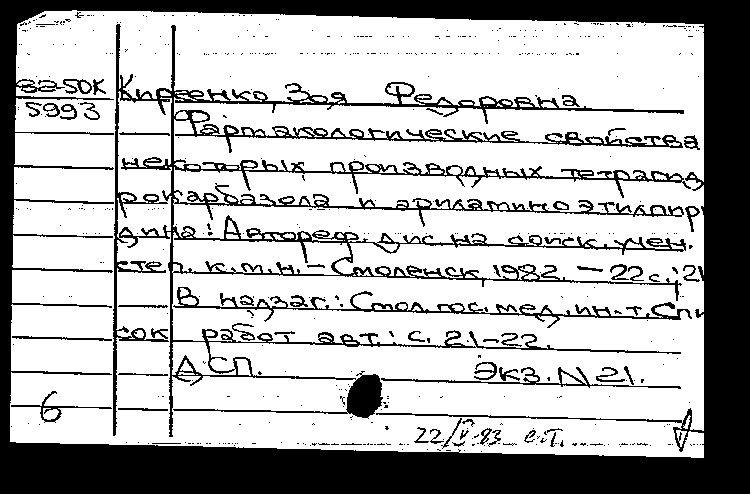 82-50К Киреенко, Зоя Федоровна.
5993
Фармакологические свойства
некоторых производных тетрагид
рокарбазола и ариламиноэтилпири
дина: Автореф. дис. на соиск. учен.
степ. к.м.н. – Смоленск, 1982. – 22 с.; 21
В надзаг.: Смол. гос. мед. ин-т. Спи
сок работ авт.: с. 21–22.
ДСП. Экз. N 21.
6
22/V-83 с.т.